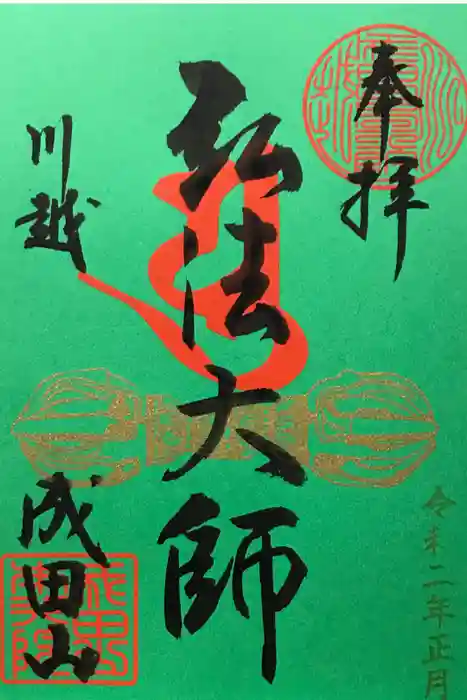 奉拝
弘法大師
川越
成田山
令和二年正月